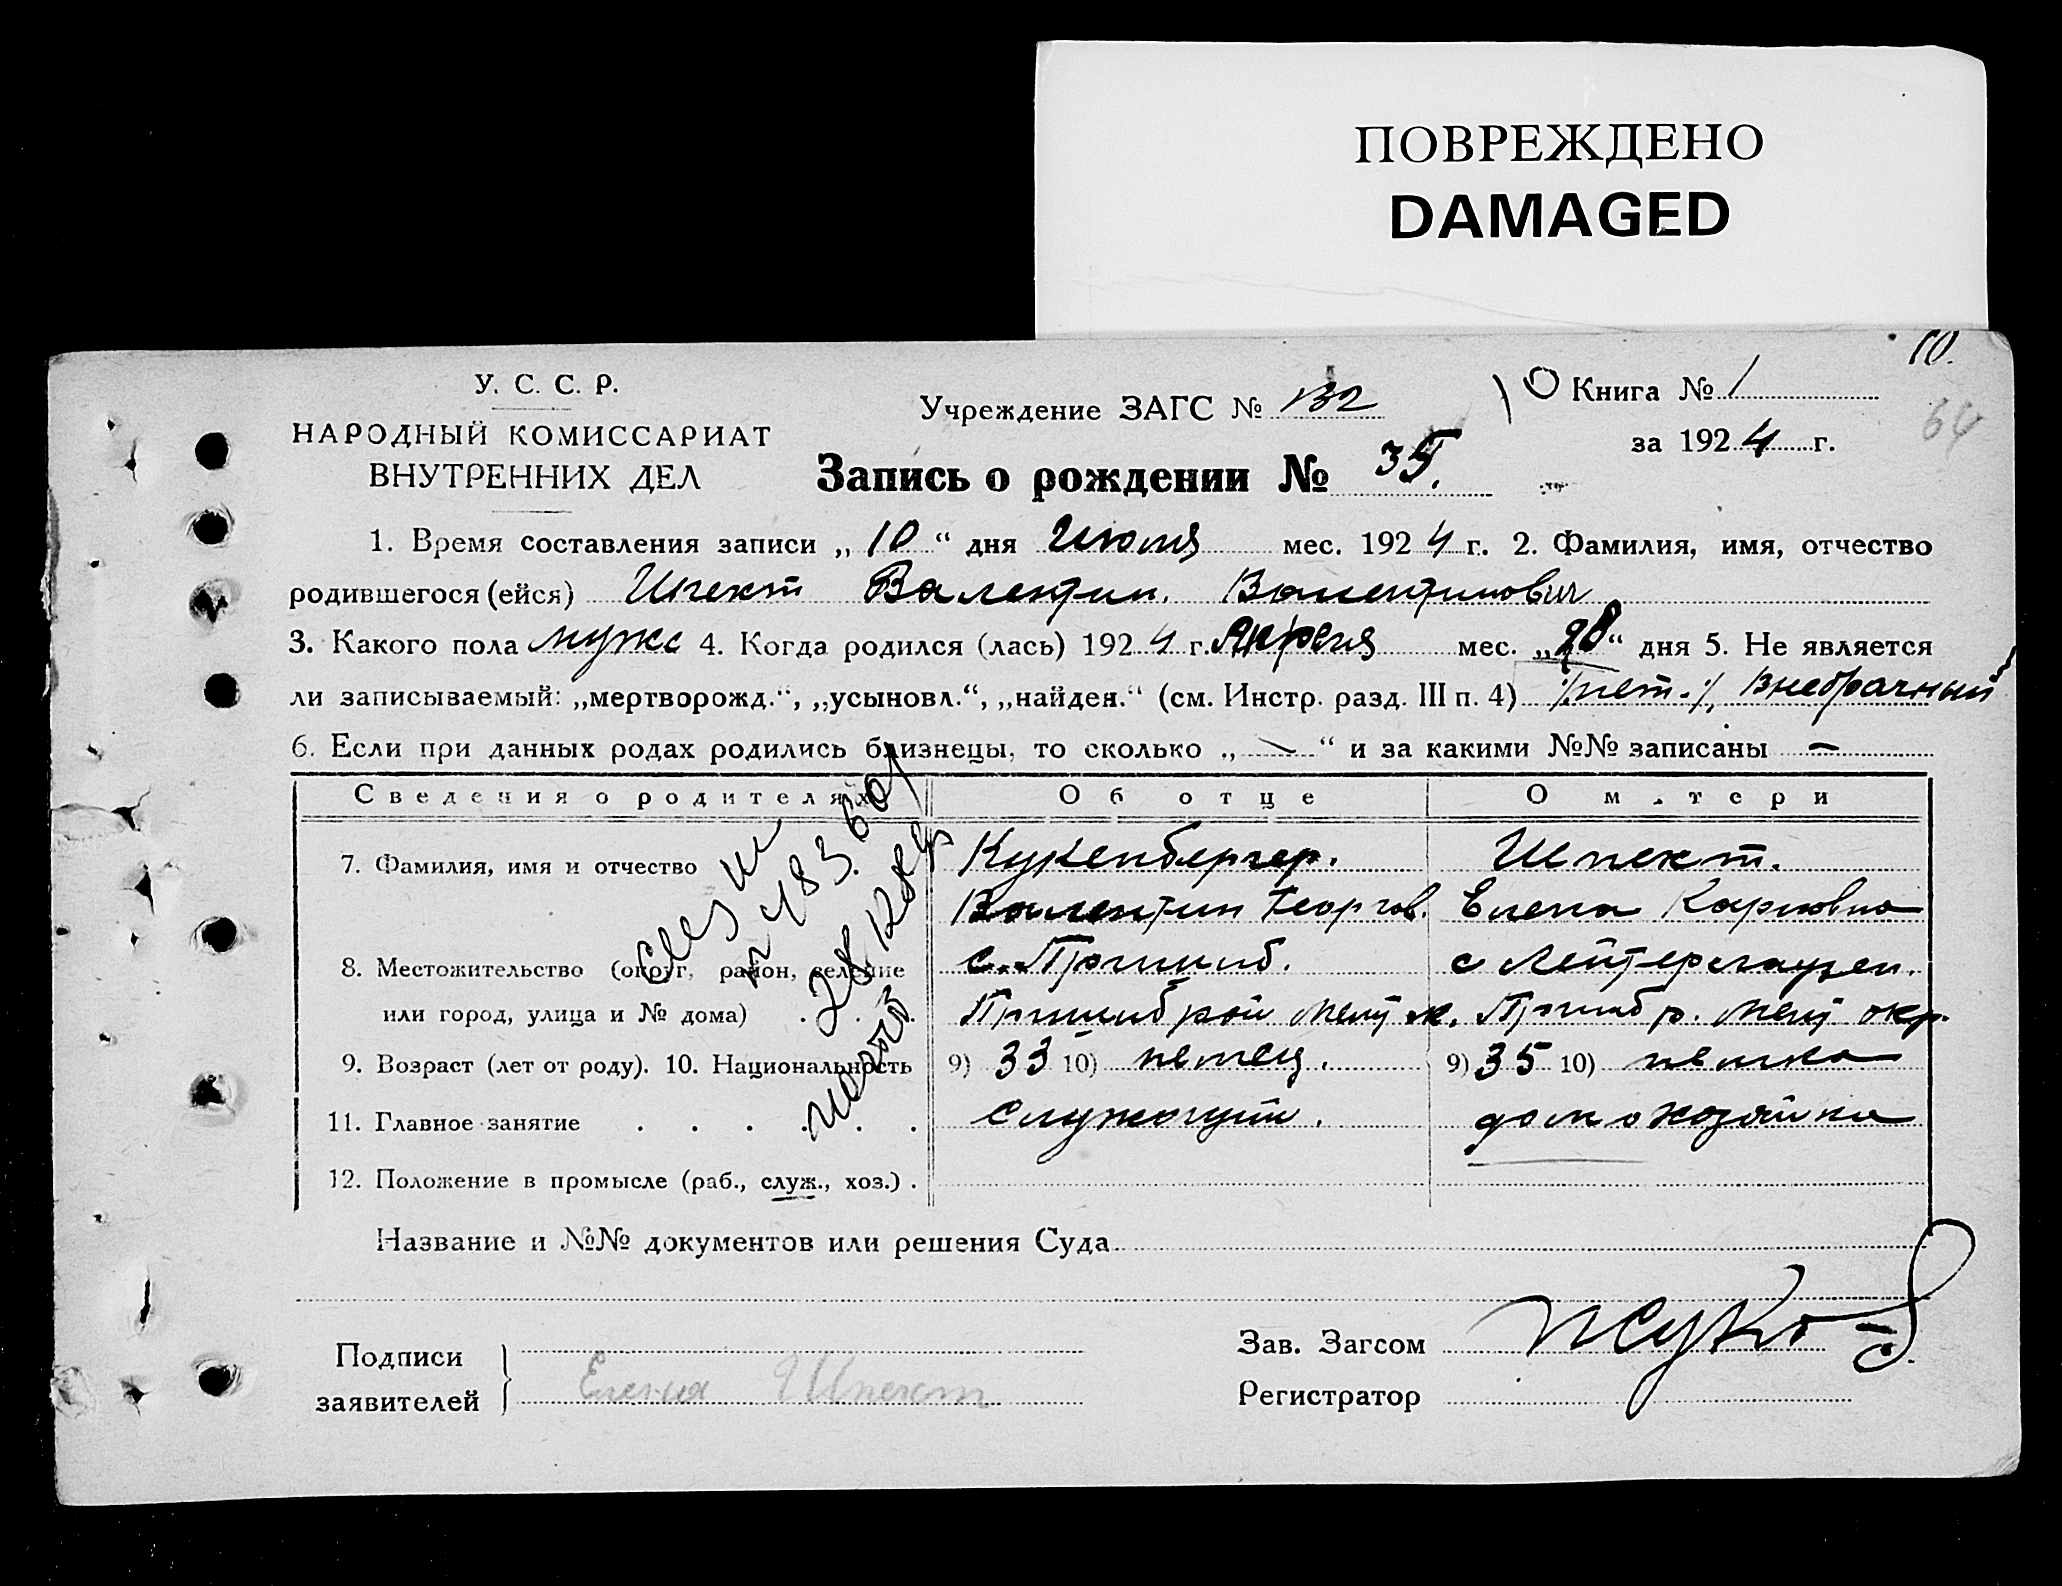 ПОВРЕЖДЕНО
DAMAGED
10.
У. С. С. Р.
НАРОДНЫЙ КОМИССАРИАТ
ВНУТРЕННИХ ДЕЛ
Учреждение ЗАГС № 132
Книга № 1
за 1924 г.
64
Запись о рождении № 35.
1. Время составления записи „10“ дня Июля мес. 1924 г. 2. Фамилия, имя, отчество
родившегося (ейся) Шпект Валентин Валентинович
3. Какого пола мужс 4. Когда родился (лась) 1924 г. Апреля мес. „28“ дня 5. Не является
ли записываемый: „мертворожд.“, „усыновл.“, „найден.“ (см. Инстр. разд. III п. 4) /нет./, Внебрачный
6. Если при данных родах родились близнецы, то сколько „—“ и за какими №№ записаны —
Сведения о родителях Об отце О матери
7. Фамилия, имя и отчество Кукенбергер. Шпект.
Валентин Георгов. Елена Карловна
8. Местожительство (округ, район, селение с. Пришиб. с Лейтерсгаузен.
или город, улица и № дома) Пришиб рай Мелит ок. Пришиб р. Мелит окр.
9. Возраст (лет от роду). 10. Национальность 9) 33 10) немец. 9) 35 10) немка
11. Главное занятие служащий. домохозяйка
12. Положение в промысле (раб., служ., хоз.)
Название и №№ документов или решения Суда
Подписи
заявителей Елена Шпект
Зав. Загсом Жуков
Регистратор